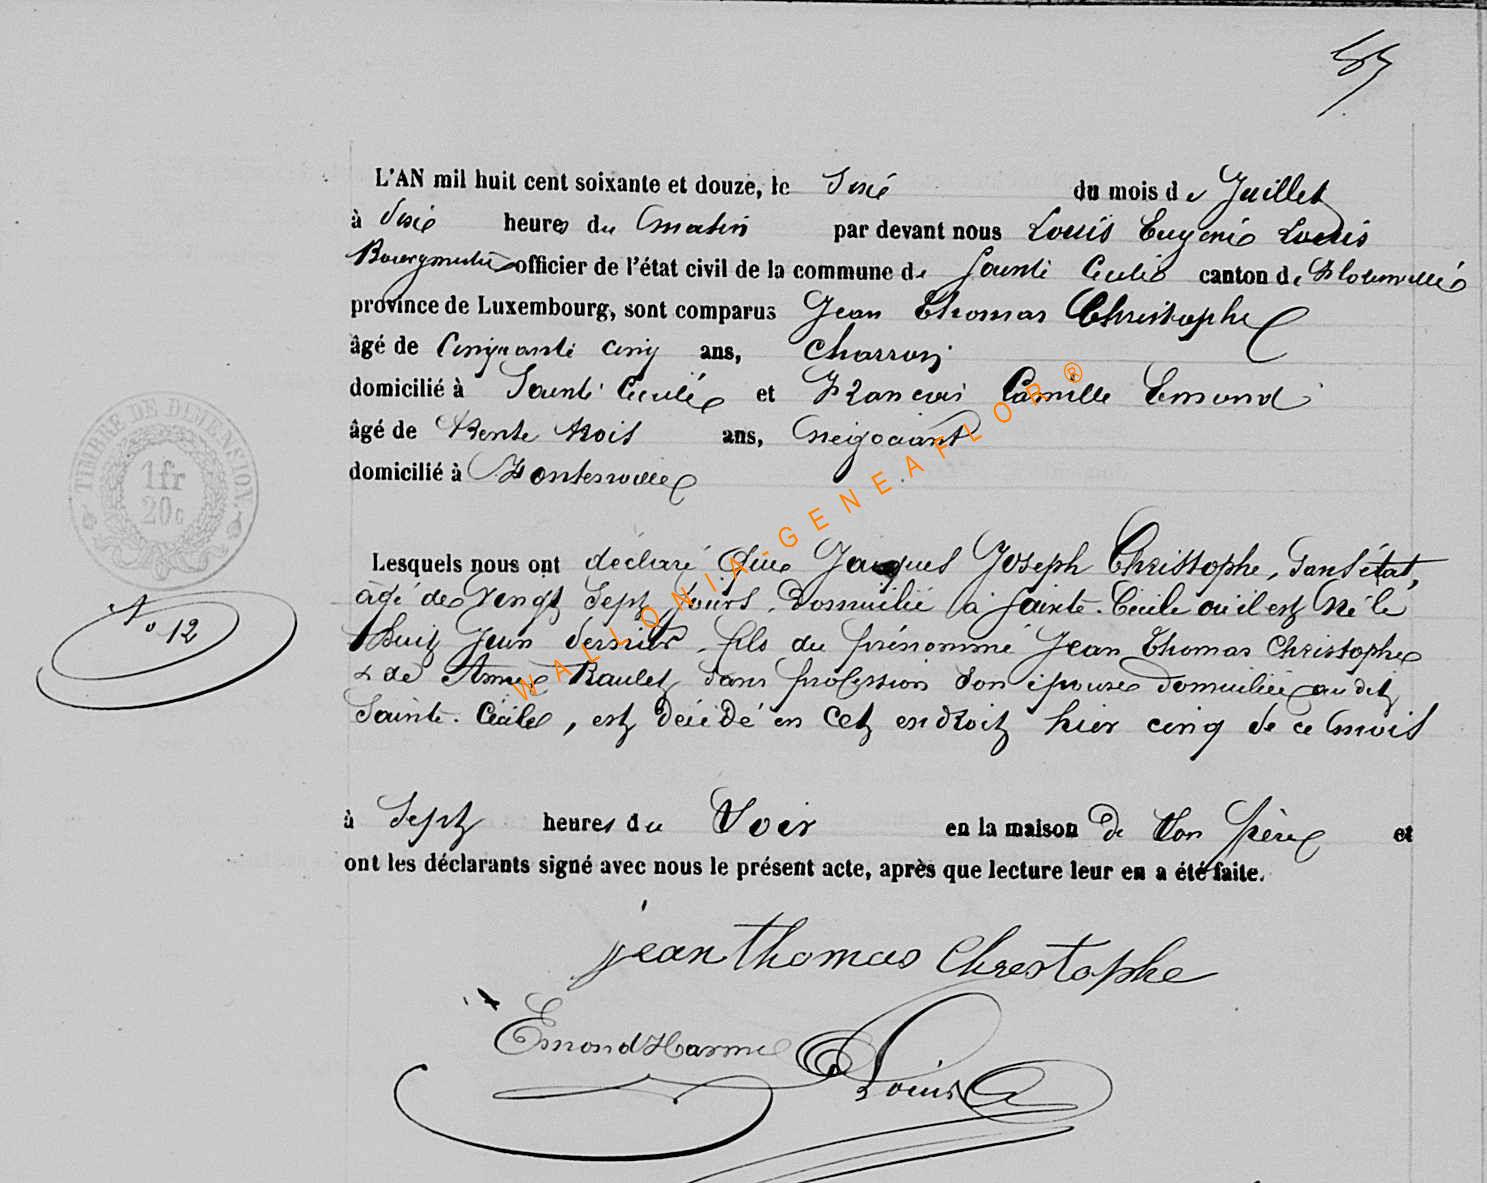 L'AN mil huit cent soixante et douze, le Sixié du mois de Juillet
à Sixie heures du matin par devant nous Louis Eugenie Louis
Bourgmestre officier de l'état civil de la commune de Sainte Cecile canton de Florenville
province de Luxembourg, sont comparus Jean Thomas Christophe
âgé de Cinquante cinq ans, charron
domicilié à Sainte Cecile et Francois Camille Emond
âgé de trente trois ans, négociant
domicilié à Fontenoille
TIMBRE DE DIMENSION.
1fr
20c
Lesquels nous ont déclaré Que Jacques Joseph Christophe, Sans état,
âgé de Vingt Sept jours, Domicilié à Sainte-Cécile où il est Né le
Huit Juin dernier, fils du prénommé Jean Thomas Christophe
No 12
& de Anne Raulet sans profession Son épouse domiciliée au dit
Sainte-Cécile, est Décédé en cet endroit hier cinq de ce mois
à Sept heures du Soir en la maison de Son père et
ont les déclarants signé avec nous le présent acte, après que lecture leur en a été faite.
jean thomas Christophe
Emond Harmel
Louis
WALLONIA-GENEAFLOR®